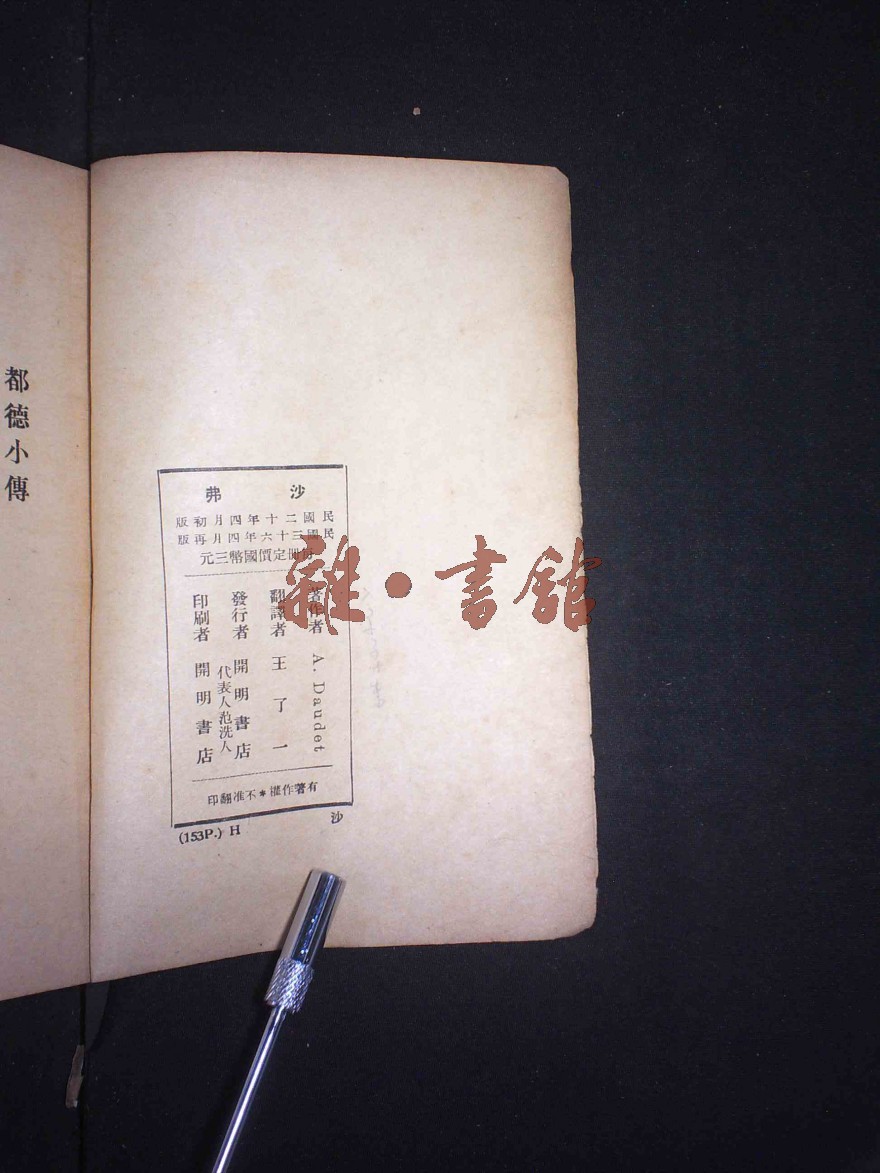 都德小傳
沙弗
民國二十年四月初版
民國三十六年四月再版
每冊定價國幣三元
著作者 A. Daudet
翻譯者 王了一
發行者 開明書店
代表人范洗人
印刷者 開明書店
有著作權*不准翻印
(153P.) H 沙
雜·書館